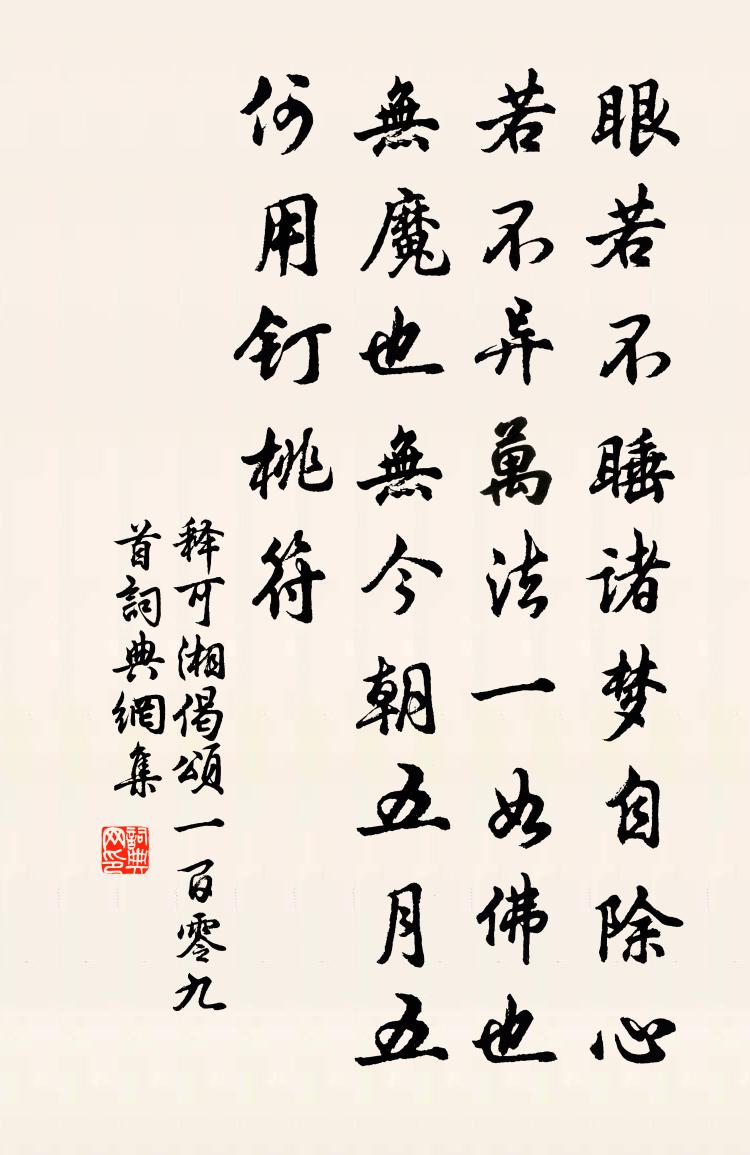 眼若不睡諸梦自除心
若不异萬法一如佛也
無魔也無今朝五月五
何用釘桃符
释可湘偈頌一百零九
首詞典網集
詞典
网印